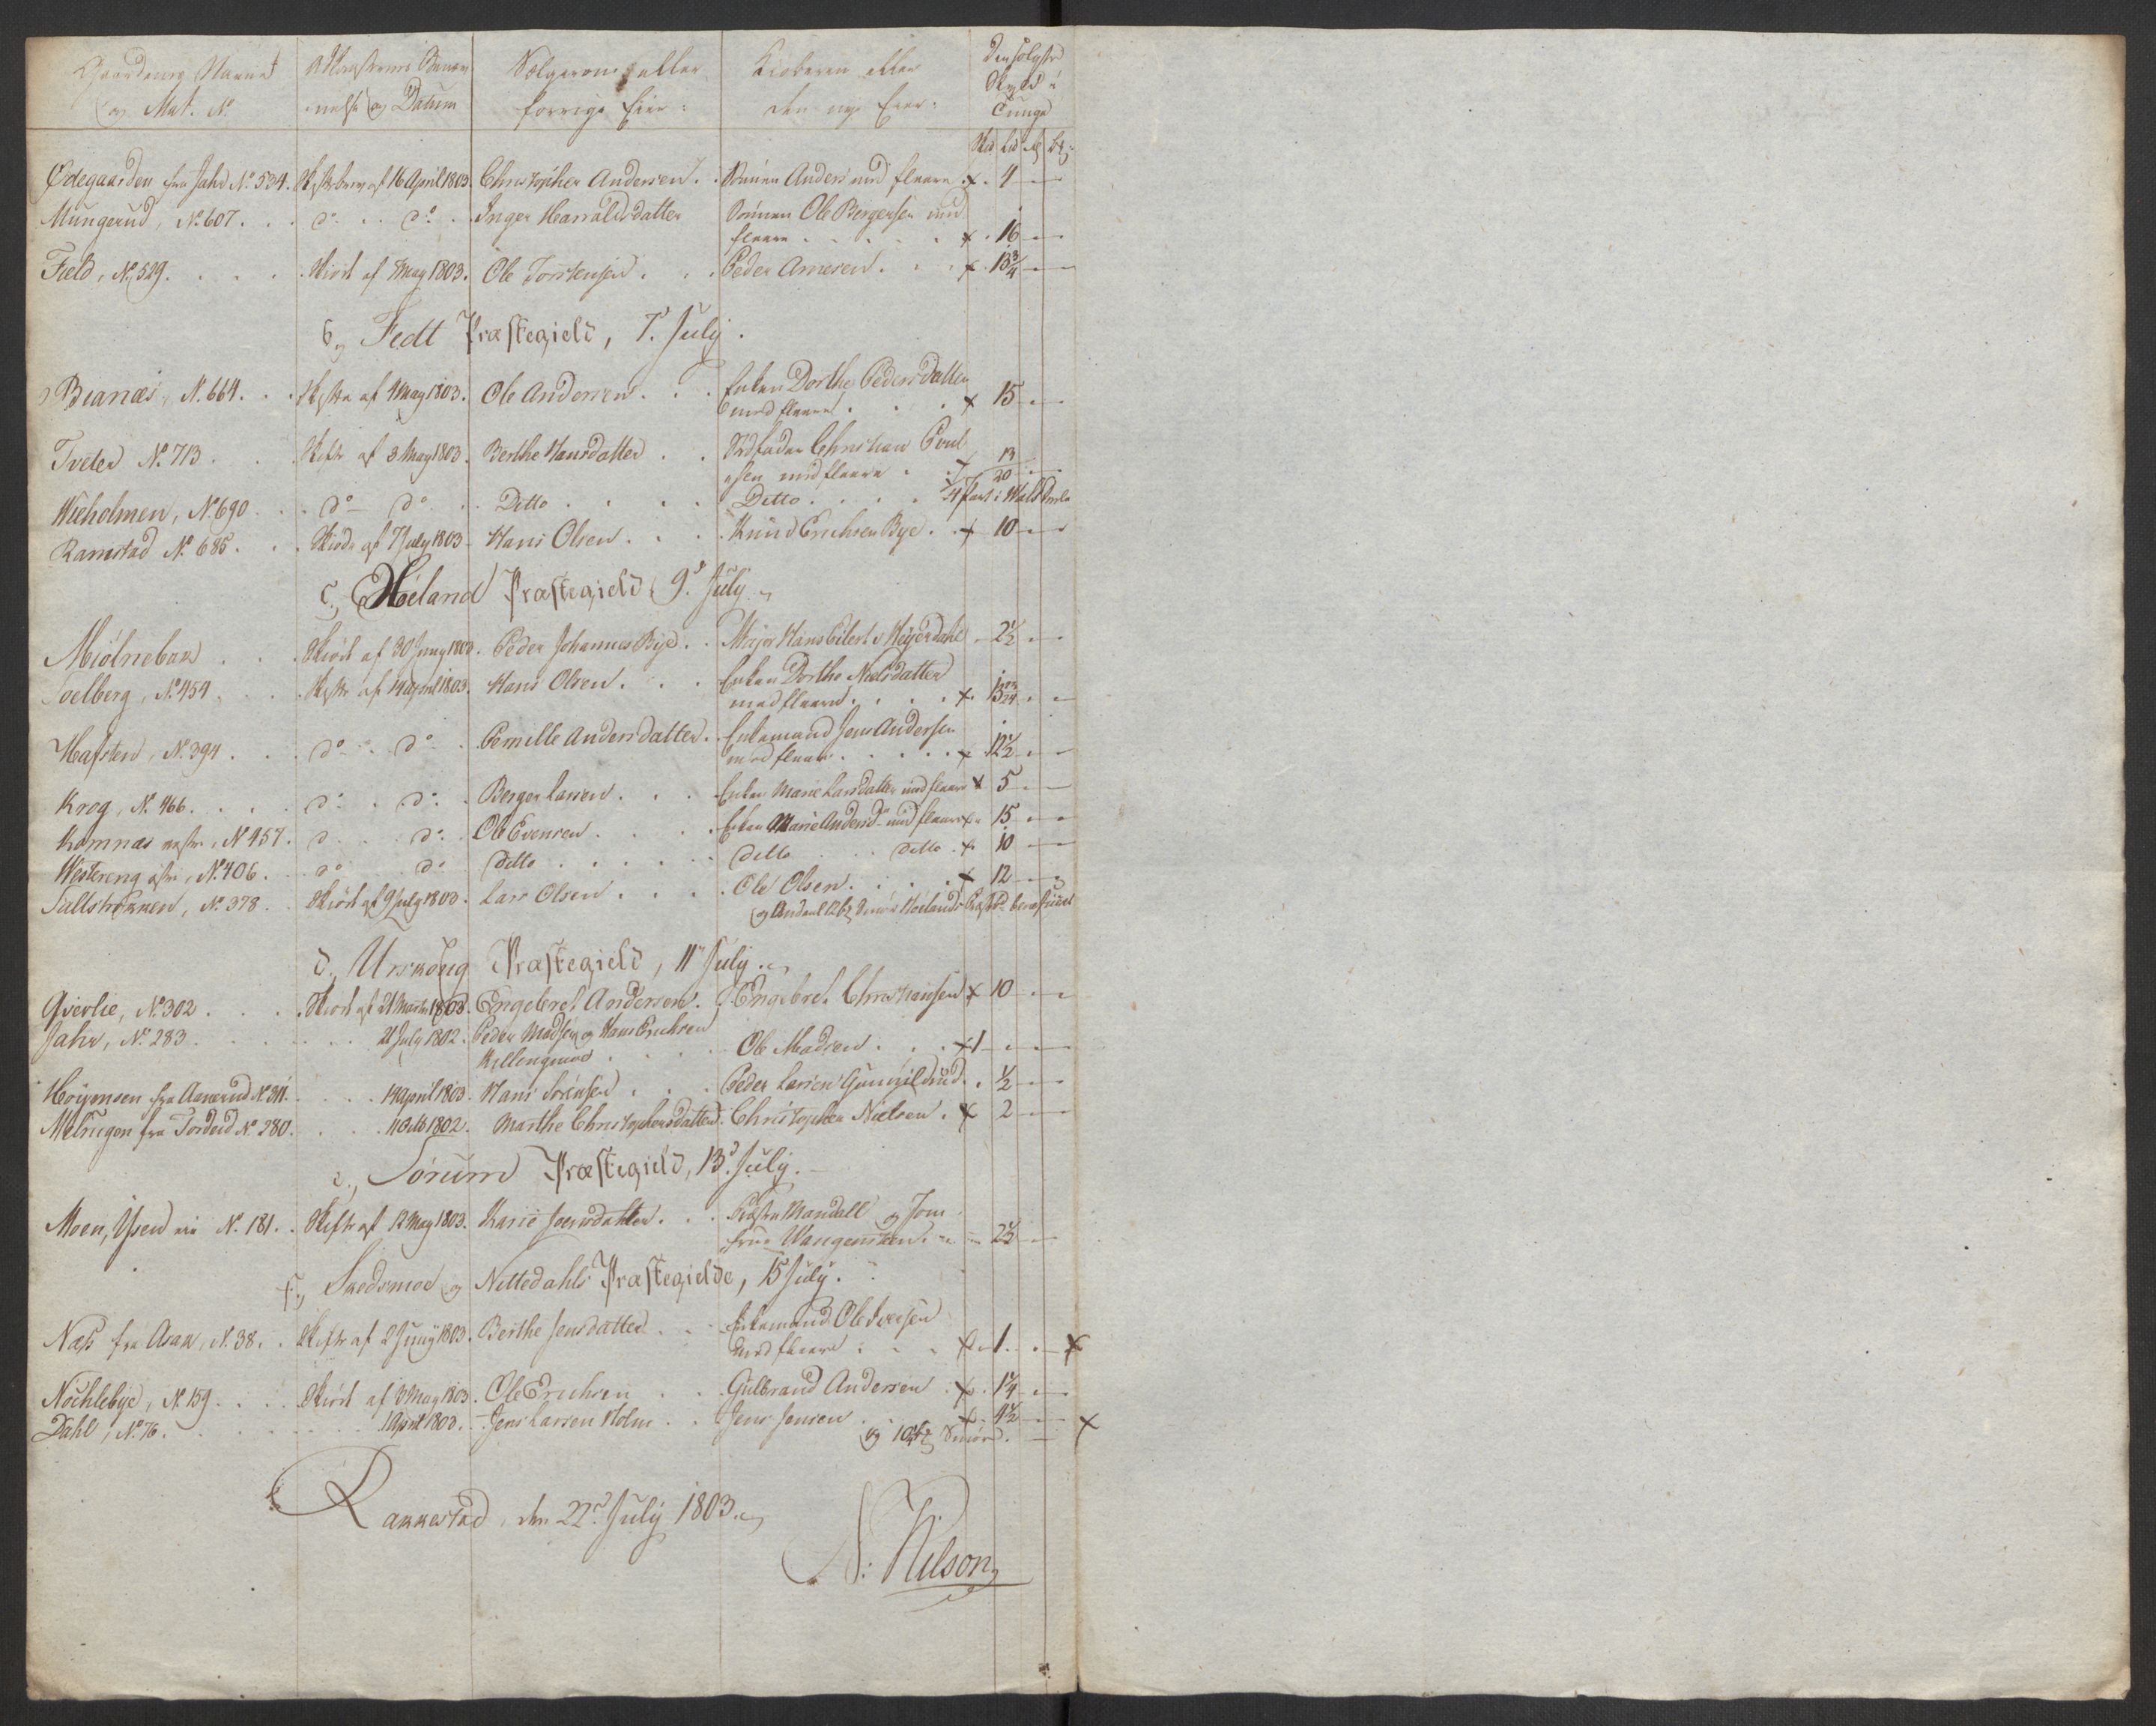 Gaardenes Navne
og Mat. No
Adkomstens Benæv-
nelse og Datum
Sælgeren eller
forrige Eier:
Kiøberen eller
den nye Eier:
Den solgte
Skyld i
Tunge
Ødegaarden fra Jahr No 534. Skiftebrev af 16 April 1803. Christopher Andersen. Sønnen Anders med fleere x 4
Mungerud, No 607. do do Inger Harraldsdatter Sønnen Ole Bergersen med
fleere x 16
Field, No 529. Skiøde af May 1803. Ole Torstensen. Peder Arnesen. x 13 3/4
b, Fedt Præstegield, 7. July.
Bianæs, No 664. Skifte af 4 May 1803. Ole Andersen. Enken Dorthe Pedersdatter
med fleere x 15
Tveter No 713. Skifte af 3 May 1803. Berthe Hansdatter Stedfader Christian Poul
sen med fleere 13/20
Wieholmen, No 690 do do Ditto Ditto
Ramstad No 685. Skiøde af 7 July 1803 Hans Olsen. Knud Erichsen Bye. x 10
c, Høland Præstegield 9. July
Miølnebak Skiøde af 30 Juny 1803. Peder Johannes Bye. Major Hans Eilert v Heyerdahl 2 1/2
Soelberg, No 454. Skifte af 14 April 1803. Hans Olsen. Enken Dorthe Nielsdatter
med fleere x 13
Hafsten, No 394. do do Pernille Andersdatter. Enkemand Jens Andersen
med fleere x 12 1/2
Krog, No 466. do do Berger Larsen. Enken Marie Larsdatter med fleere x 5
Komnæs No 457. do do Ole Evensen. Enken Marie Andersd. med fleere x 15
Westereng No 406. do do Ditto Ditto Ditto x 10
Sultstokken, No 378. Skiøde af 9 July 1803. Lars Olsen. Ole Olsen. x 12
d, Urskoug Præstegield, 11 July.
Qverlie, No 302 Skiøde af 21 Marts 1803. Engebret Andersen. Engebret Christiansen x 10
Jahr, No 283 21 July 1802. Peder Madsen og Hans Erichsen
Killingmoe Ole Madsen. x 1
Høyemsen fra Aamrud No 311. 14 April 1803. Hans Sørensen Peder Larsen Gunnildrud. 1/2
Melnigen fra Tordeid No 280. 11 Octb 1802. Marthe Christophersdatter. Christopher Nielsen. x 2
e, Sørum Præstegield, 13. July.
Moen, No 181. Skifte af 12 May 1803. Karie Joensdatter. Mandall og Jom
frue Wangensteen. 2 1/2
f, Skedsmoe og Nittedahls Præstegielde, 15 July.
Næss fra Asak, No 38. Skifte af 2 Juny 1803. Berthe Jensdatter Enkemand Ole Iversen
med fleere x 1. x
Nochlebye, No 159. Skiøde af 3 May 1803. Ole Erichsen Gulbrand Andersen x 1 1/4
Dahl, No 76. 1 April 1803. Jens Larsen Holm Jens Jensen x 4 1/2
og 10 Smør. x
Rakkestad, den 22. July 1803.
N: Nilson